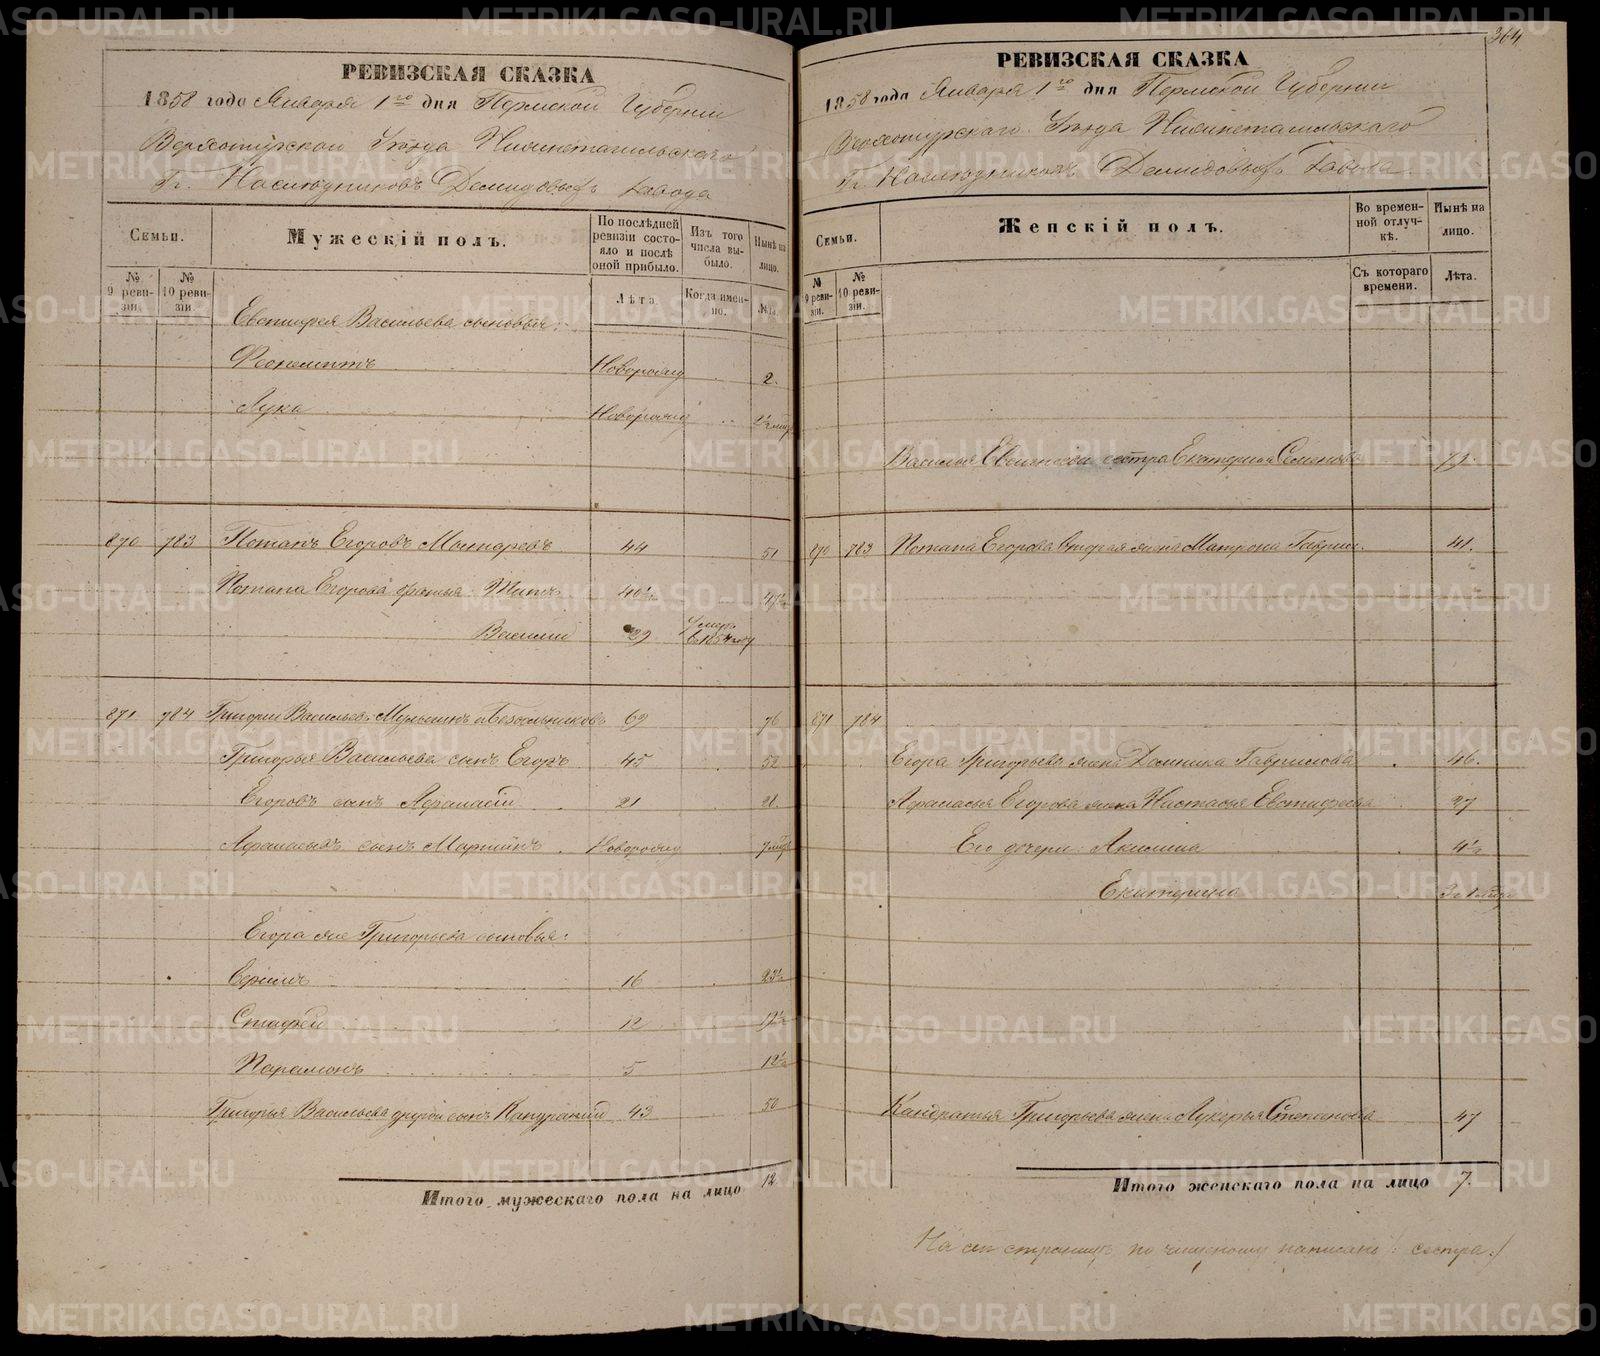 РЕВИЗСКАЯ СКАЗКА
1858 года Января 1го дня Пермской Губернии
Верхотурскаго Уѣзда Нижнетагильскаго
Гг. Наслѣдниковъ Демидовыхъ завода
Семьи.
Мужескій полъ.
По послѣдней ревизіи состояло и послѣ оной прибыло.
Изъ того числа выбыло.
Нынѣ на лицо.
№ 9 ревизіи.
№ 10 ревизіи.
Лѣта.
Когда именно.
Лѣта.
Евстифея Васильева сыновья:
Феопемптъ Новорожд 2.
Лука Новорожд
870 783 Потапъ Егоровъ 44 51
Потапа Егорова братья: Титъ 40½ 47½
Василий 29 Умеръ въ 1854 году
871 784 Григорий Васильевъ 69 76
Григорья Васильева сынъ Егоръ 45 52
Егоровъ сынъ Афанасий 21 28
Афанасьевъ сынъ Новорожд
Егора же Григорьева сыновья:
16 23½
12 19½
Парамонъ 5 12½
Григорья Васильева другой сынъ 43 50
Итого мужескаго пола на лицо 12.
364
РЕВИЗСКАЯ СКАЗКА
1858 года Января 1го дня Пермской Губернии
Верхотурскаго Уѣзда Нижнетагильскаго
Гг. Наслѣдниковъ Демидовыхъ Завода.
Семьи.
Женскій полъ.
Во временной отлучкѣ.
Нынѣ на лицо.
№ 9 ревизіи.
№ 10 ревизіи.
Съ котораго времени.
Лѣта.
Василья сестра Екатерина Семенова
870 783 Потапа Егорова вторая жена Матрона Гаврил. 41.
871 784
Егора Григорьева жена Домника Гаврилова 46.
Афанасья Егорова жена Настасья Евстифеева 27
Его дочери: Акилина 4½
Екатерина
Кандратья Григорьева жена Лукерья Степанова 47
Итого женскаго пола на лицо 7.
На сей страницѣ по чищеному написано: сестра.
METRIKI.GASO-URAL.RU